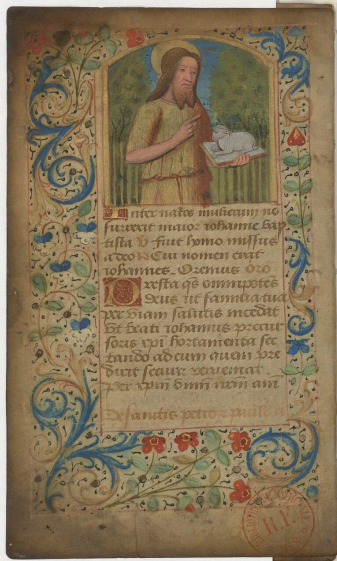 Inter natos mulierum no
surrexit maior iohanne bap
tista v̄ fuit homo missus
a deo R Cui nomen erat
iohannes. Oremus Oro
Presta qs omnipotes
deus ut familia tua
per viam salutis incedat
et beati iohannis precur
soris xpi hortamenta sec
tando ad eum quem pre
dixit secur
per xpm dnm nrm am
De sanctis petro et paulo a